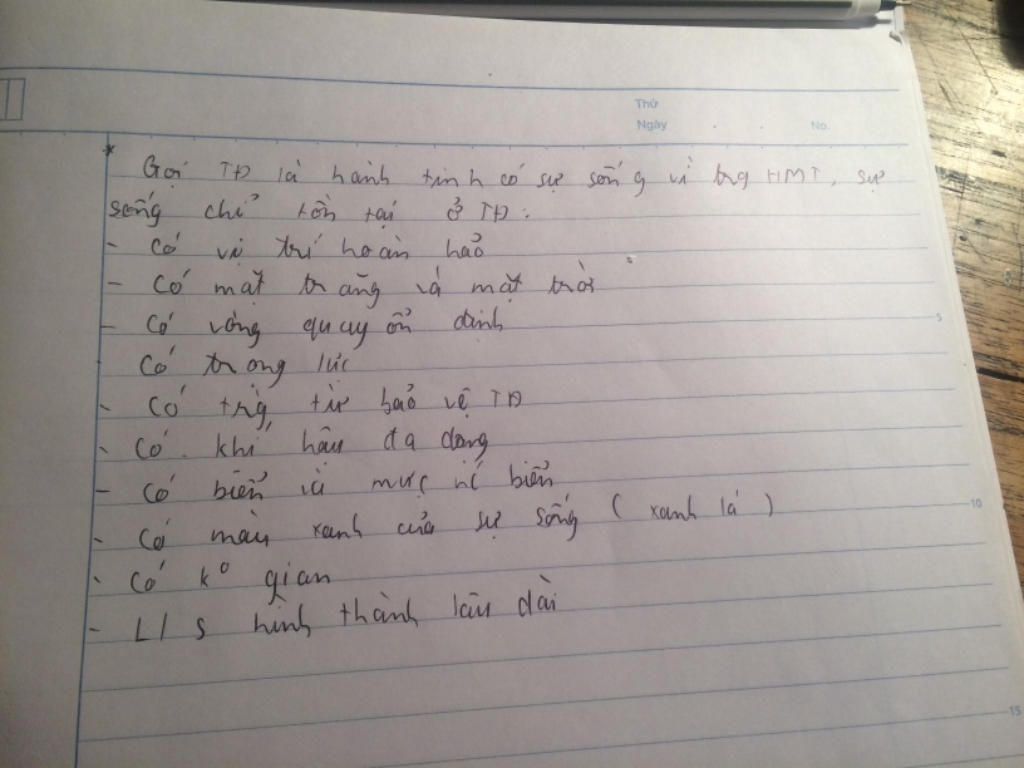 Thứ
Ngày . . No.
* Gọi TĐ là hành tinh có sự sống vì trg HMT, sự
sống chỉ tồn tại ở TĐ :
- Có vị trí hoàn hảo
- Có mặt trăng và mặt trời
- Có vòng quay ổn định
Có trọng lực
- Có từ bảo vệ TĐ
- Có khí hậu đa dạng
- Có biển và mực nc biển
- Có màu xanh của sự sống ( xanh lá )
- Có ko gian
- L/s hình thành lâu dài
5
10
15